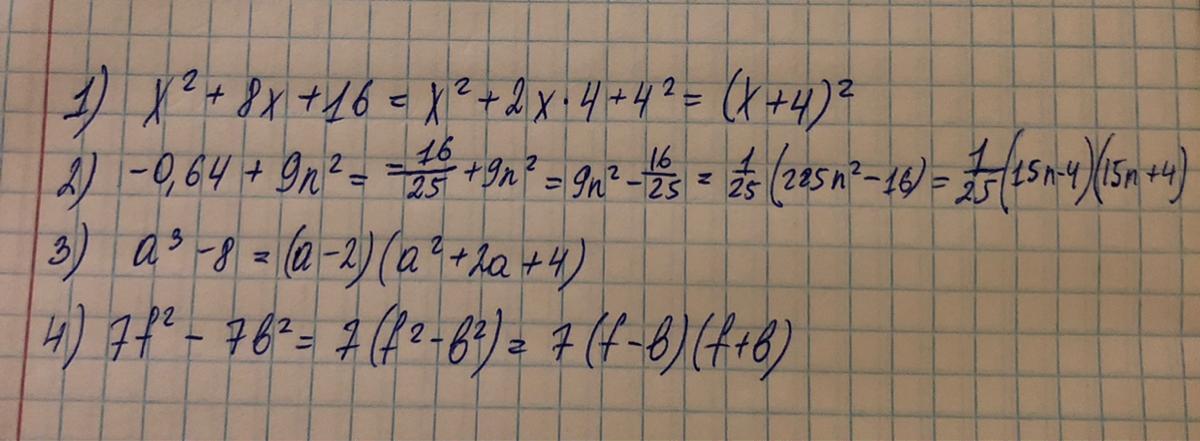 1) x² + 8x + 16 = x² + 2x · 4 + 4² = (x + 4)²
2) -0,64 + 9n² = -16/25 + 9n² = 9n² - 16/25 = 1/25 (225n² - 16) = 1/25 (15n - 4)(15n + 4)
3) a³ - 8 = (a - 2)(a² + 2a + 4)
4) 7f² - 7b² = 7(f² - b²) = 7(f - b)(f + b)